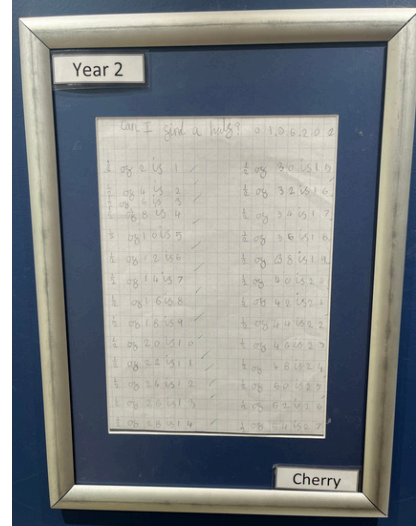 Year 2
Can I find a half? 01.06.202
½ of 2 is 1
½ of 4 is 2
½ of 6 is 3
½ of 8 is 4
½ of 10 is 5
½ of 12 is 6
½ of 14 is 7
½ of 16 is 8
½ of 18 is 9
½ of 20 is 10
½ of 22 is 11
½ of 24 is 12
½ of 26 is 13
½ of 28 is 14
½ of 30 is 15
½ of 32 is 16
½ of 34 is 17
½ of 36 is 18
½ of 38 is 19
½ of 40 is 2
½ of 42 is 2
½ of 44 is 22
½ of 46 is 2
½ of 48 is 2
½ of 50 is 2
½ of 52 is 26
½ of 54 is 2
Cherry